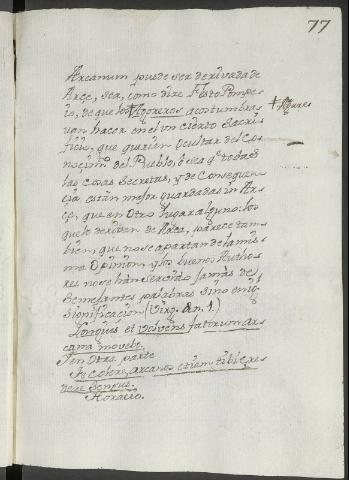 77
Arcanum puede ser derivada de
Arçe, sea, como dize Festo Pompe
io, de que los † Agoreros acostumbra
van hacer en el un cierto Sacri
ficio, que querien ocultar del Co
† Agures
noçimto. del Pueblo, ò sea qe. todas
las cosas Secretas, y de Consequen
çia están major guardadas in Ar
çe, que en Otro lugar alguno: los
que le derivan de Arca, parece tam
bien, que no se apartan de la mis
ma Opinion, y los buenos Autho
res no se han servido jamas de
Semejantes palabras sino en
Significacion (Virg. Æn. 1.)
Longius et volvens fatorum Ar
cana movebo.
Y en Otra parte
arcanos etiam tibi
Horacio.